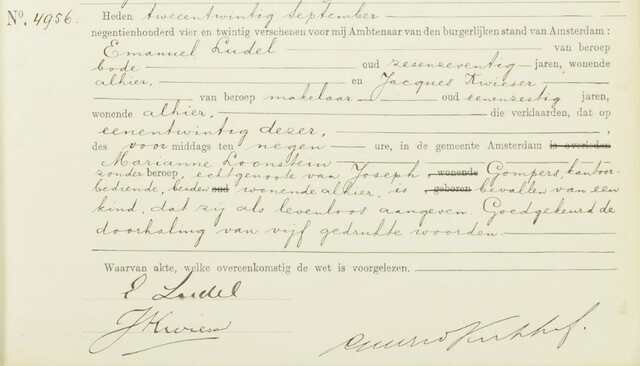 Nº. 4956.
Heden tweeentwintig September
negentienhonderd vier en twintig verschenen voor mij Ambtenaar van den burgerlijken stand van Amsterdam:
Emanuel Ludel van beroep
bode oud zesenzeventig jaren, wonende
alhier, en Jacques Kwieser
van beroep makelaar oud eenenzestig jaren,
wonende alhier, die verklaarden, dat op
eenentwintig dezer,
des voormiddags ten negen ure, in de gemeente Amsterdam is overleden
Marianne Loonstein
zonder beroep, echtgenoote van Joseph , wonende Gompers, kantoor-
bediende, beiden oud wonende alhier, is , geboren bevallen van een
kind, dat zij als levenloos aangeven. Goedgekeurd de
doorhaling van vijf gedrukte woorden
Waarvan akte, welke overeenkomstig de wet is voorgelezen.
E Ludel
J Kwieser